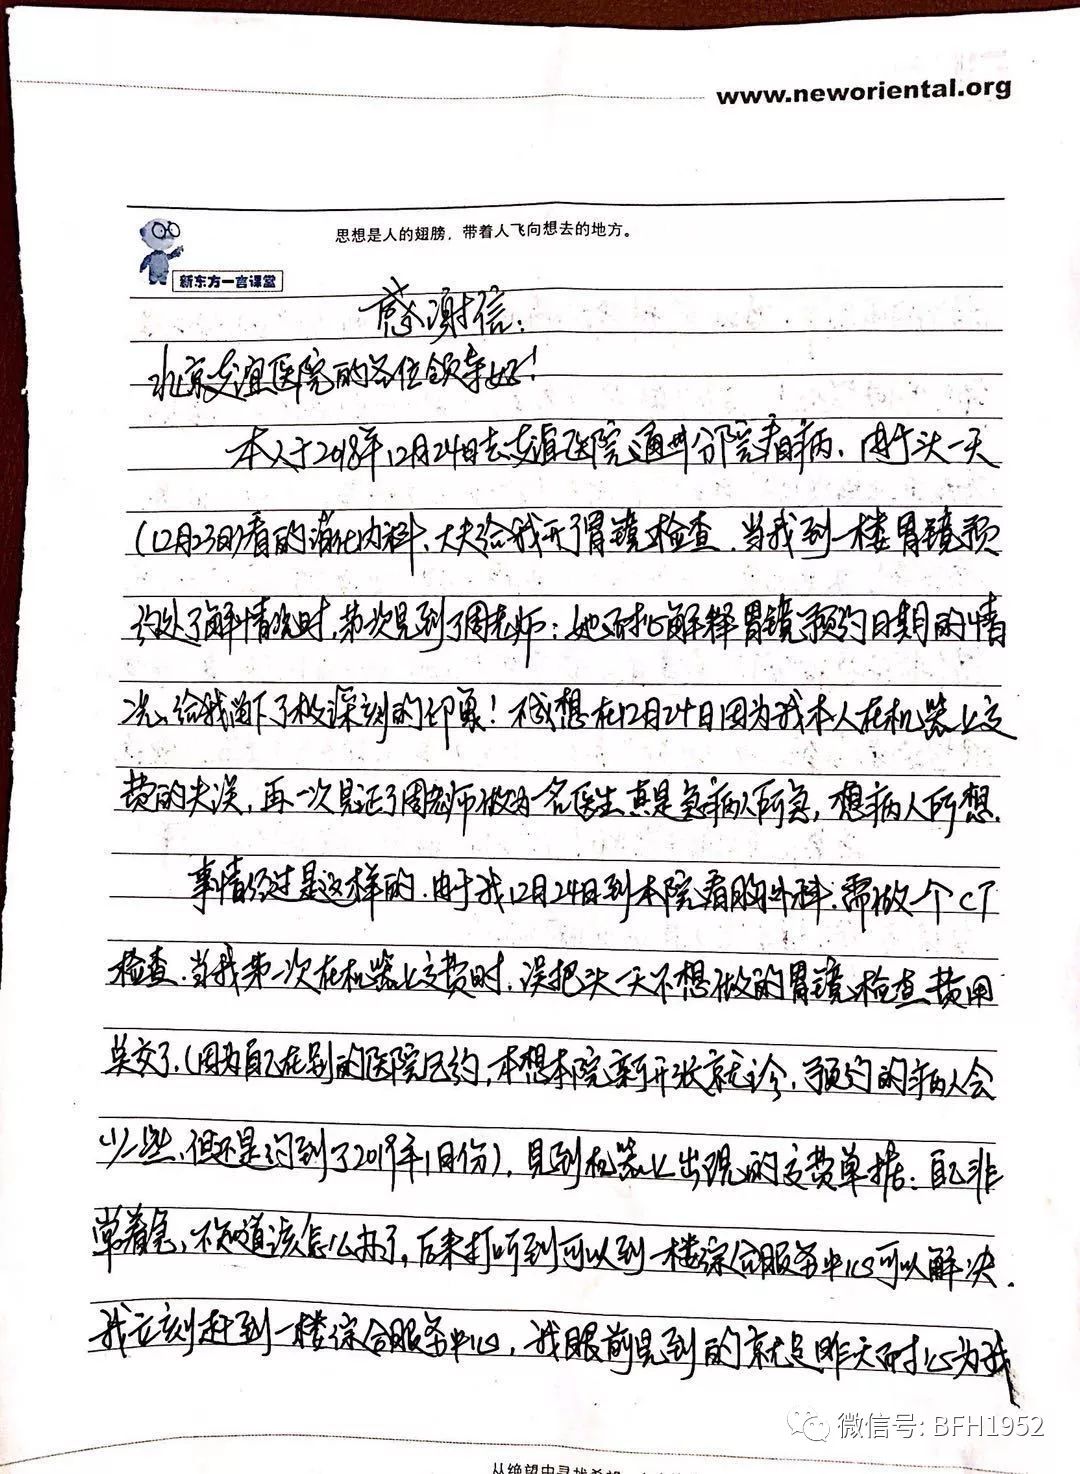 www.neworiental.org
思想是人的翅膀，带着人飞向想去的地方。
新东方一言课堂
感谢信：
北京友谊医院的各位领导好！
本人于2018年12月24日去友谊医院通州分院看病，由于头一天
(12月23日)看的消化内科、大夫给我开了胃镜检查，当我到一楼胃镜预
约处了解情况时，第次见到了周老师：她耐心解释胃镜预约日期的情
况，给我留下了极深刻的印象！不成想在12月24日因为我本人在机器上交
费的失误，再一次见证了周老师做为一名医生真是急病人所急，想病人所想。
事情经过是这样的，由于我12月24日到本院看胸外科，需做一个CT
检查，当我第一次在机器上交费时，误把头一天不想做的胃镜检查费用
先交了，(因为自己在别的医院已约，本想本院新开张就诊，预约的病人会
少一些、但还是约到了2019年1月份)，见到机器上出现的交费单据：自己非
常着急，不知道该怎么办了，后来打听到可以到一楼综合服务中心可以解决，
我立刻赶到一楼综合服务中心，我眼前见到的就是昨天耐心为我
微信号: BFH1952